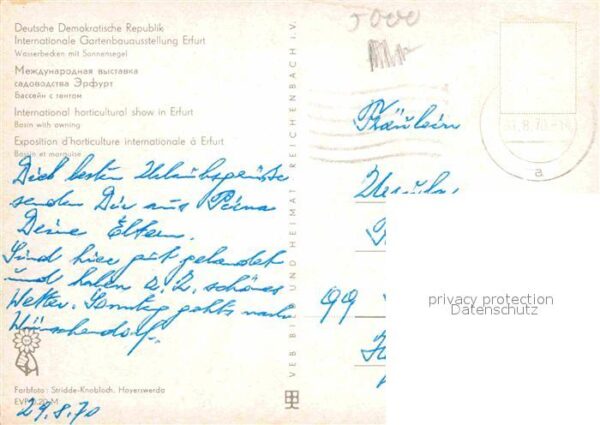 Deutsche Demokratische Republik
Internationale Gartenbauausstellung Erfurt
Wasserbecken mit Sonnensegel
Международная выставка
садоводства Эрфурт
Бассейн с тентом
International horticultural show in Erfurt
Basin with awning
Exposition d'horticulture internationale à Erfurt
Bassin et marquise
Die besten Urlaubsgrüße
senden Dir aus Pirna
Deine Eltern.
Sind hier gut gelandet
und haben z. Z. schönes
Wetter. Sonntag gehts nach
Wünschendorf.
Farbfoto: Stridde-Knobloch, Hoyerswerda
EVP 0,20 M
29.8.70
VEB BILD UND HEIMAT REICHENBACH i. V.
5000
Fräulein
99
a
privacy protection
Datenschutz